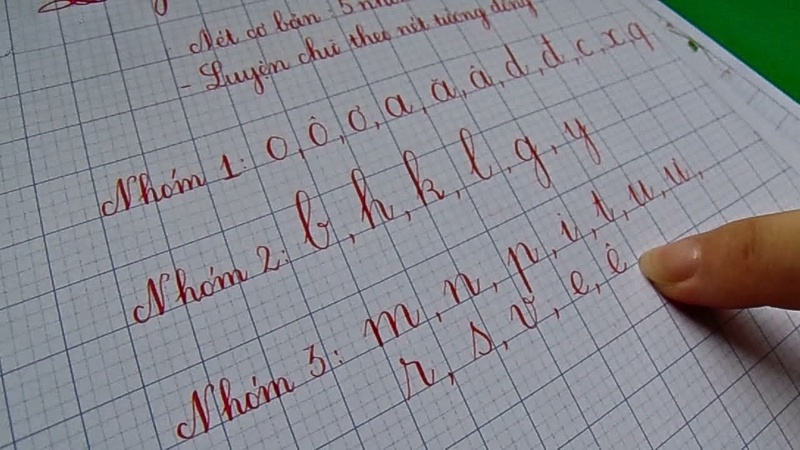 - Nét cơ bản: 5 nh
- Luyện chữ theo nét tương đồng
Nhóm 1: o, ô, ơ, a, ă, â, d, đ, c, x, q
Nhóm 2: b, h, k, l, g, y
Nhóm 3: m, n, p, i, t, u, ư,
r, s, v, e, ê